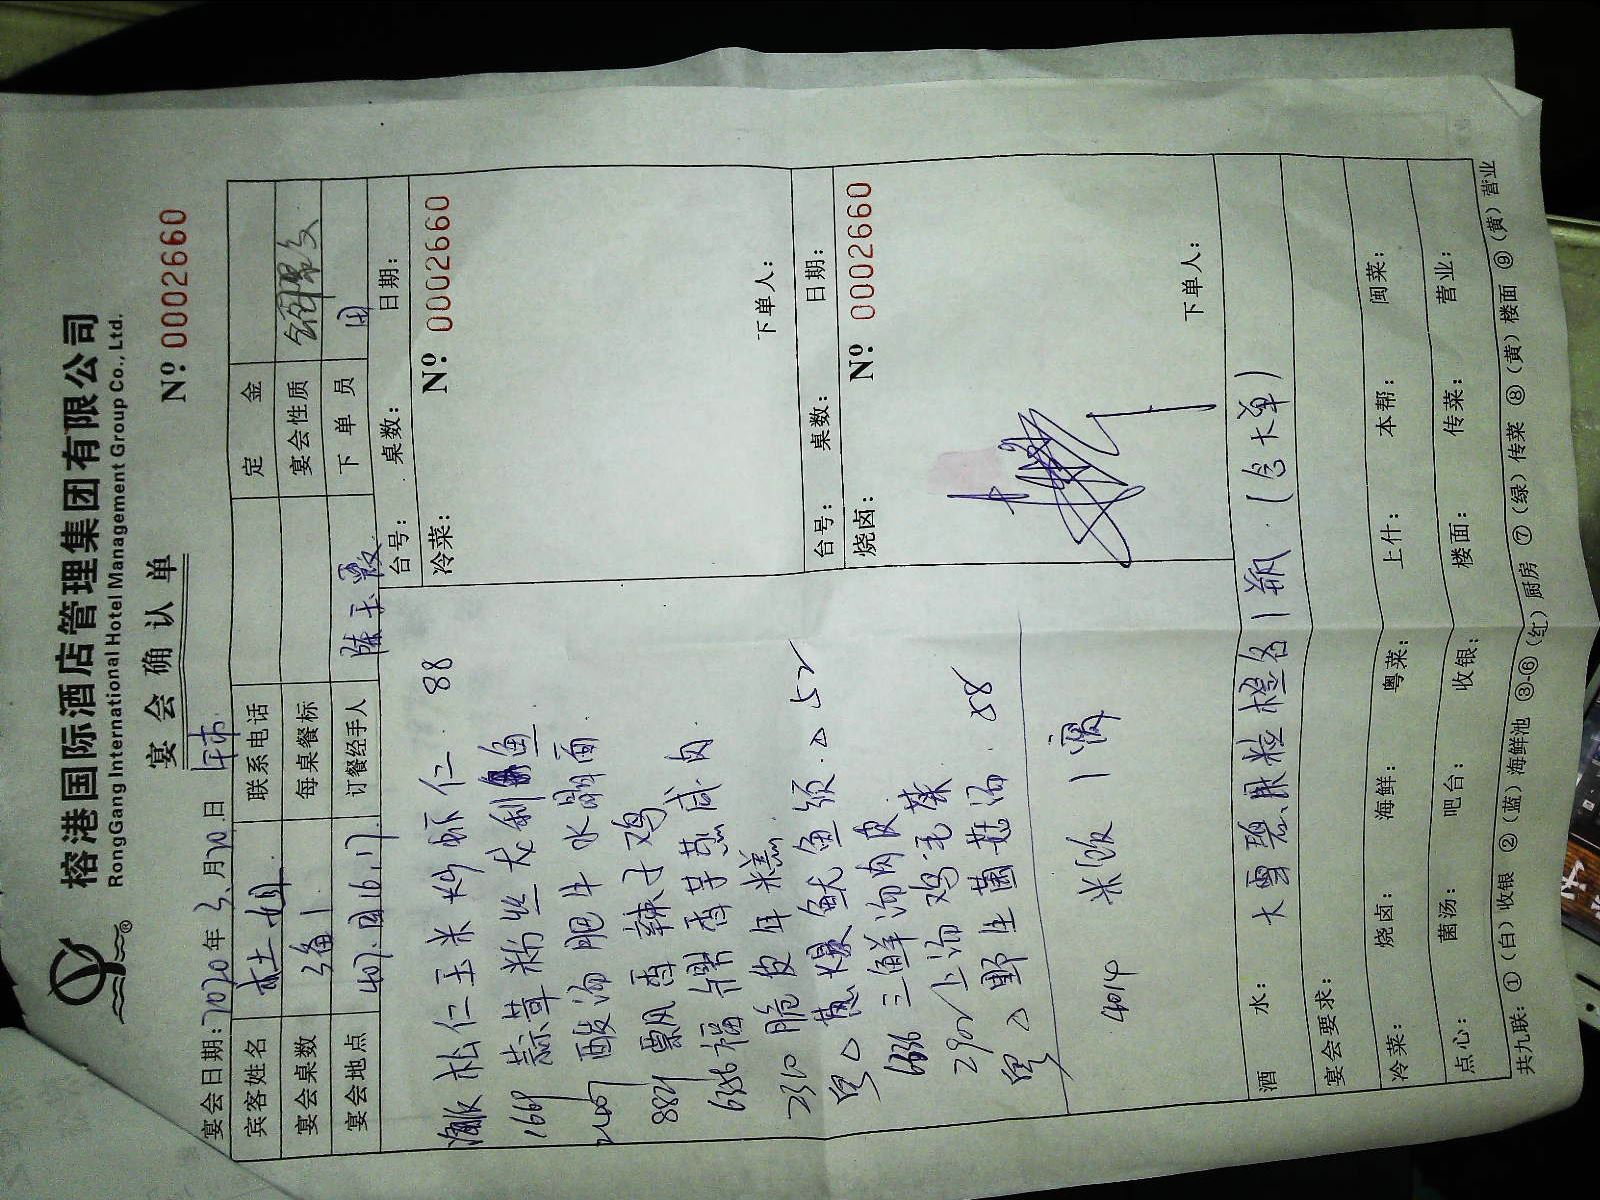 榕港国际酒店管理集团有限公司
RongGang International Hotel Management Group Co., Ltd.
宴会确认单
Nº 0002660
宴会日期: 2020年3月20日 午市
宾客姓名 林土姐 联系电话 定金
宴会桌数 1 每桌餐标 宴会性质
宴会地点 订餐经手人 陈玉霞 下单员 周
台号: 桌数: 日期:
冷菜: Nº 0002660
海鲜 松仁玉米炒虾仁 88
1668 蒜茸粉丝龙利鱼
酸汤肥牛水晶面
8821 飘香辣子鸡
6356 福鼎香芋蒸咸肉
2310 脆皮年糕
葱爆鱿鱼须 52
6636 三鲜汤肉皮
2902 上汤鸡毛菜
野生菌菇汤 58
4014 米饭
下单人:
台号: 桌数: 日期:
烧卤: Nº 0002660
下单人:
酒水: 大雪碧.果粒橙各1瓶.(含大单)
宴会要求:
冷菜: 烧卤: 海鲜: 粤菜: 上什: 本帮: 闽菜:
点心: 菌汤: 吧台: 收银: 楼面: 传菜: 营业:
共九联: ①(白)收银 ②(蓝)海鲜池 ③-⑥(红)厨房 ⑦(绿)传菜 ⑧(黄)楼面 ⑨(黄)营业